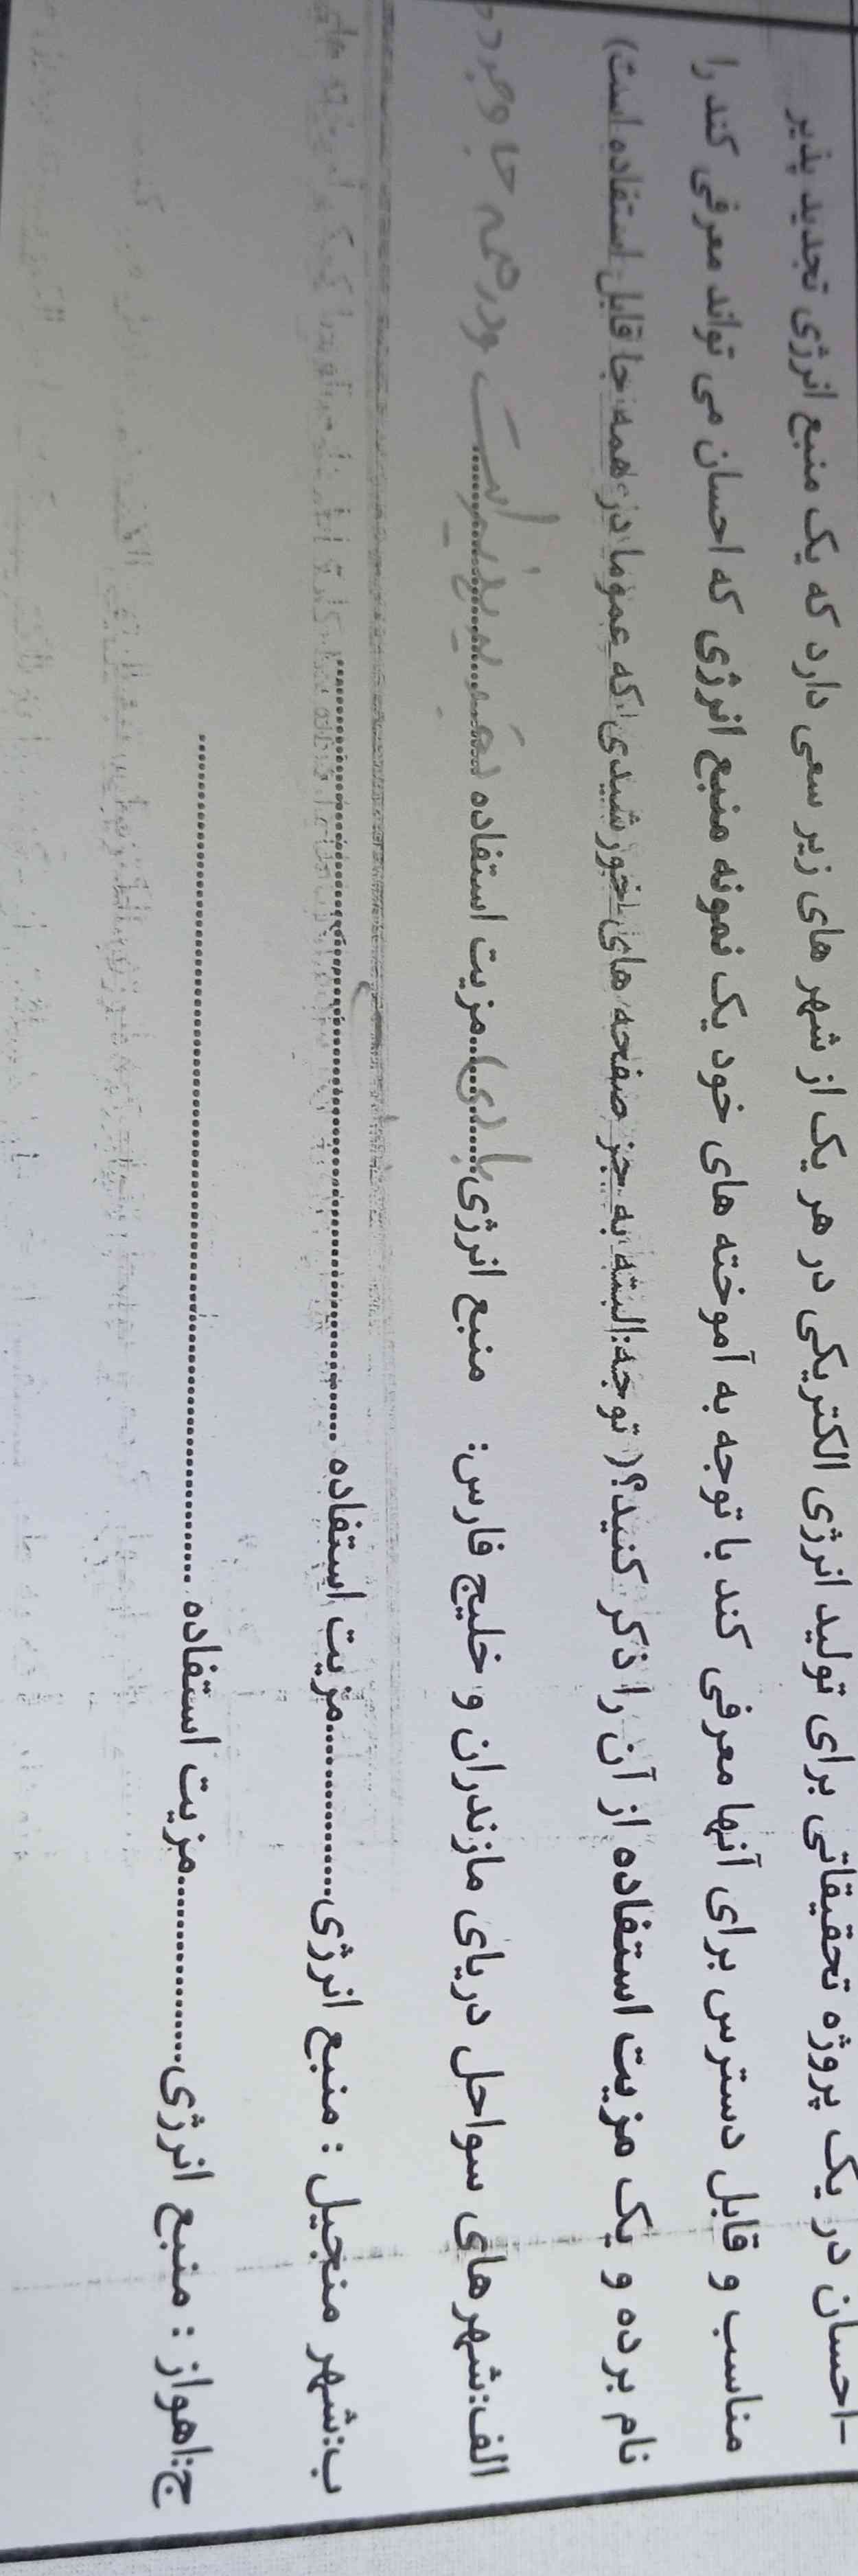 -احسان در یک پروژه تحقیقاتی برای تولید انرژی الکتریکی در هر یک از شهر های زیر سعی دارد که یک منبع انرژی تجدید پذیر
مناسب و قابل دسترس برای آنها معرفی کند با توجه به آموخته های خود یک نمونه منبع انرژی که احسان می تواند معرفی کند را
نام برده و یک مزیت استفاده از آن را ذکر کنید؟( توجه:البته به جز صفحه های خورشیدی که عموما در همه جا قابل استفاده است)
الف:شهرهای سواحل دریای مازندران و خلیج فارس: منبع انرژی..بادی..مزیت استفاده تجدید پذیر است ودر همه جا وجود د
ب:شهر منجیل : منبع انرژی...............مزیت استفاده ...............................................
ج:اهواز : منبع انرژی...............مزیت استفاده ...............................................